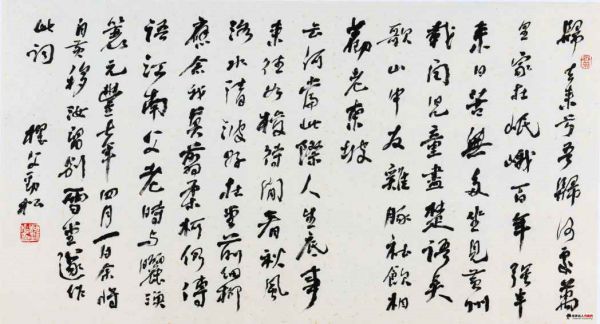 歸去來兮吾歸何處萬
里家在岷峨百年強半
來日苦無多坐見黃州
載閏兒童盡楚語吳
歌山中友雞豚社飲相
勸老東坡
云何當此際人生底事
來往如梭待閒看秋風
洛水清波好在堂前細柳
應念我莫翦柔柯仍傳
語江南父老時與曬漁
蓑元豐七年四月一日余將
自黃移汝留別雪堂遂作
此詞
父勁松